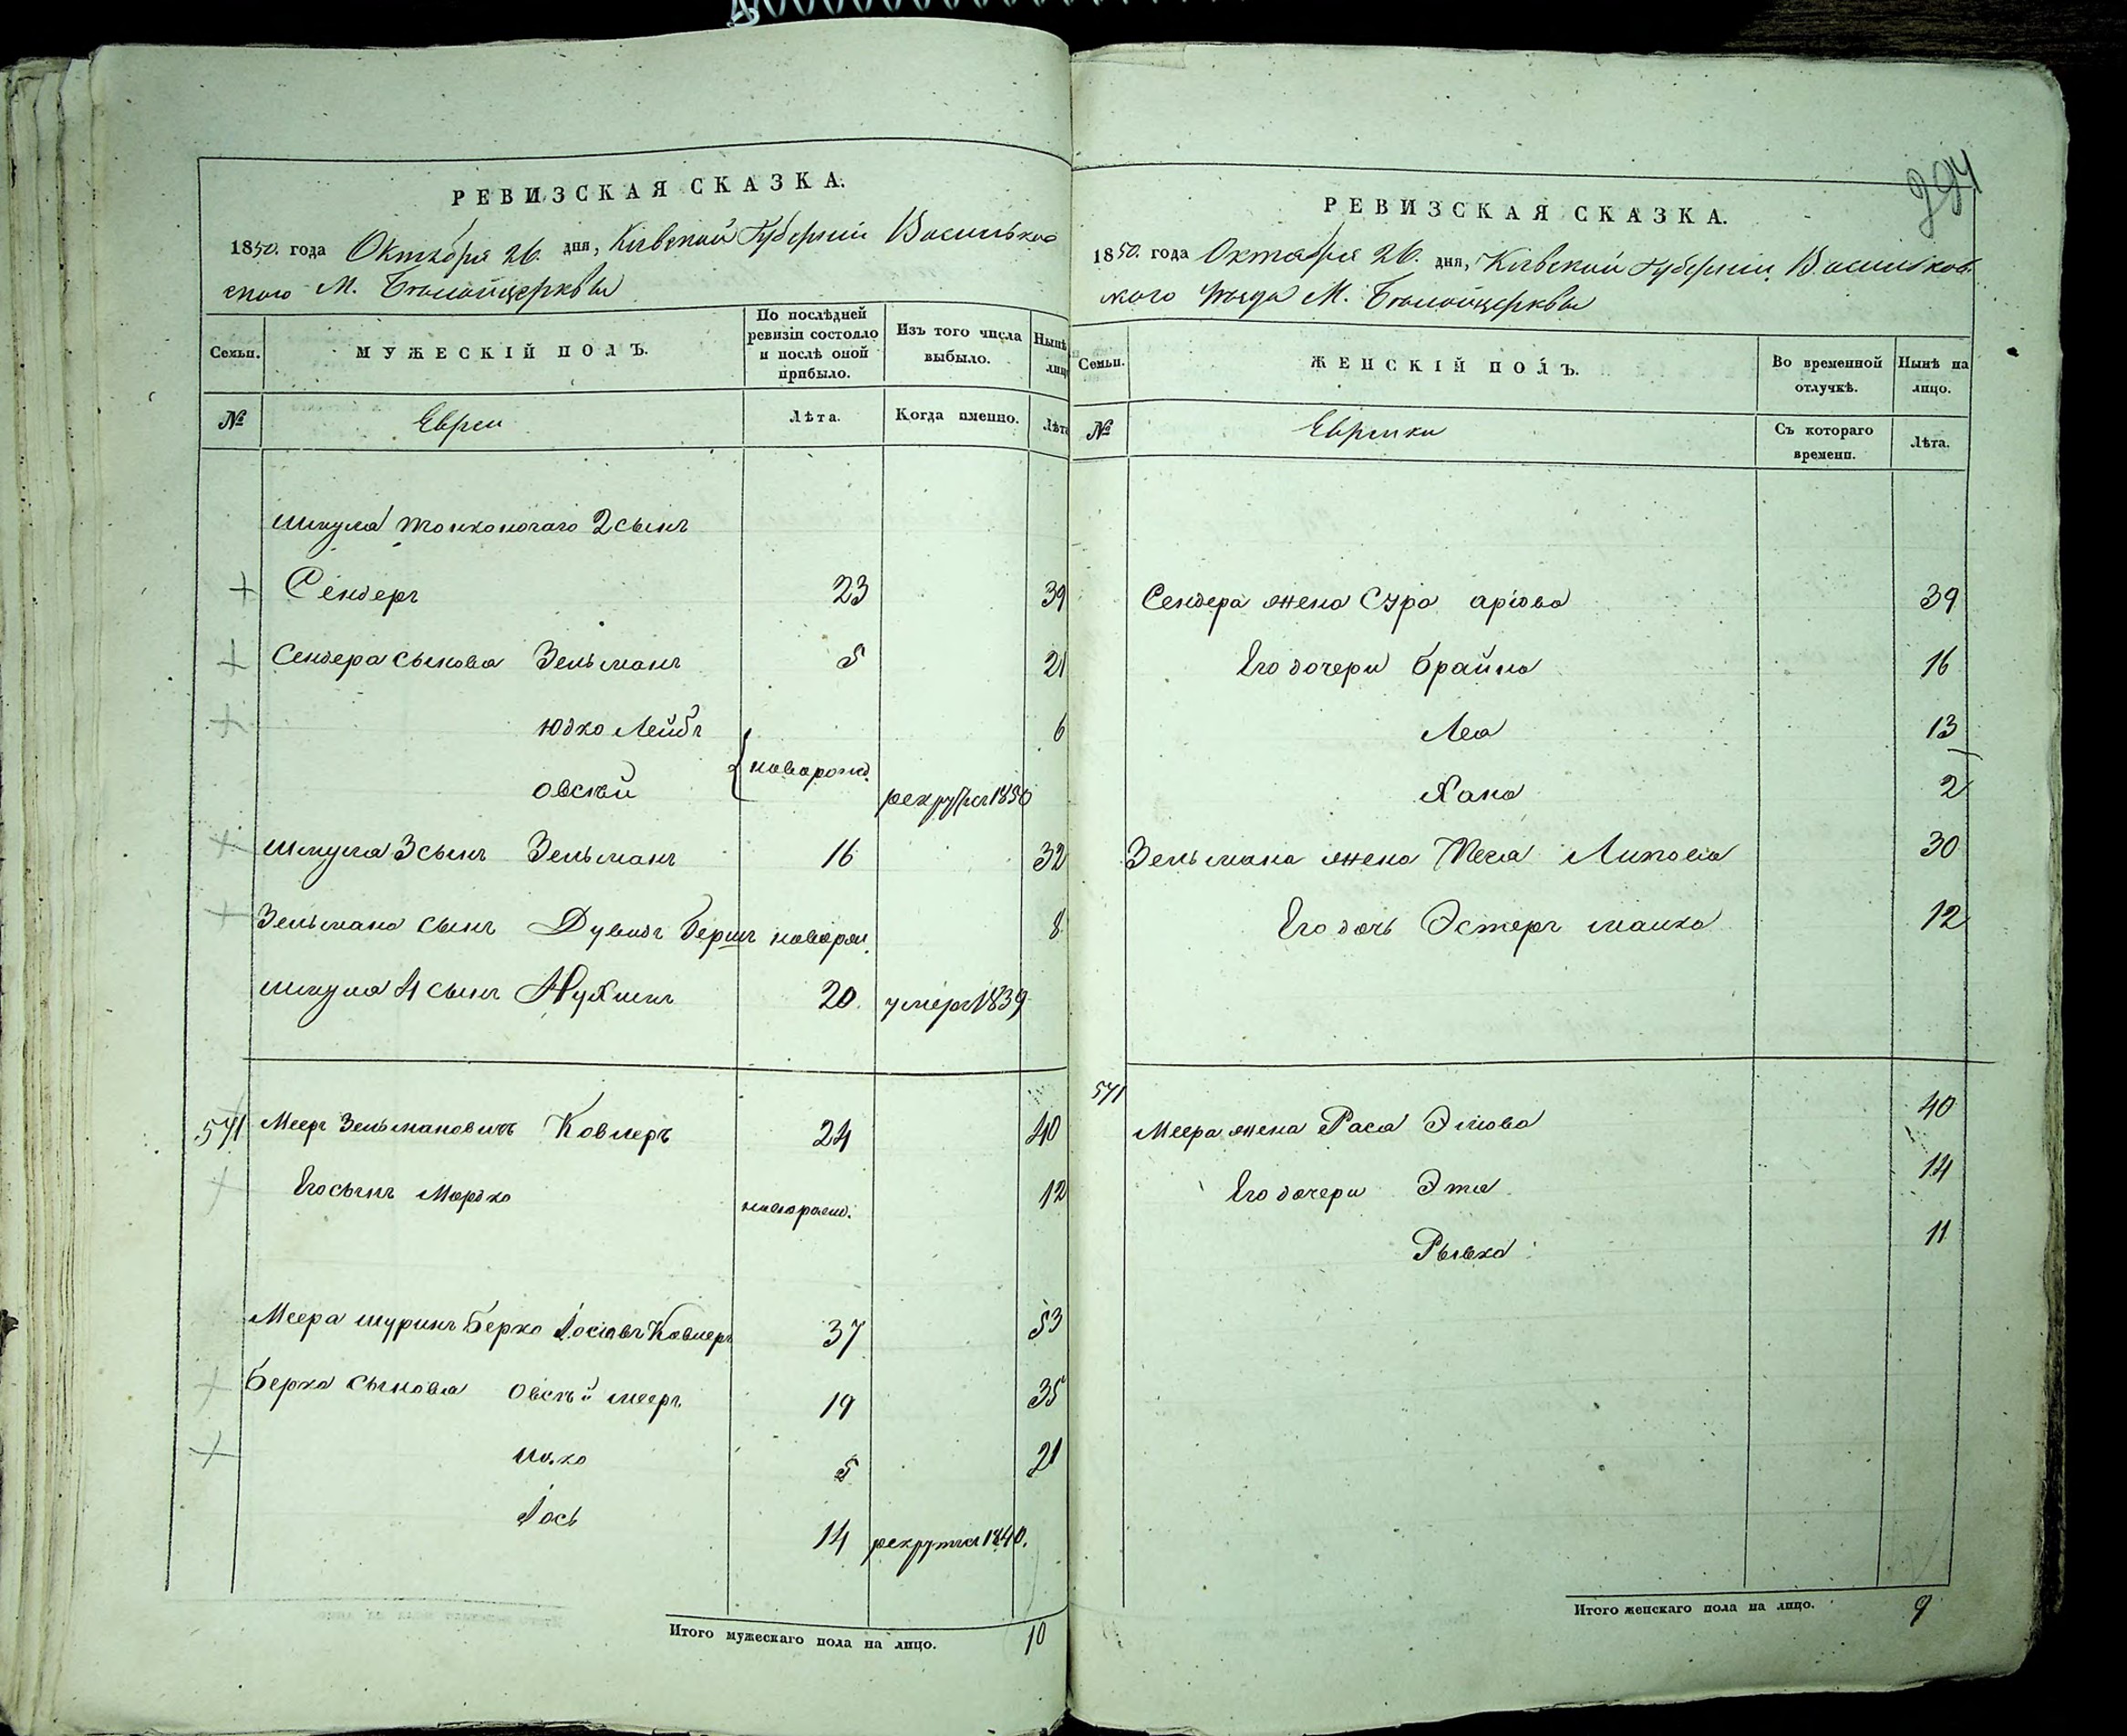 РЕВИЗСКАЯ СКАЗКА.
1850. года Октября 26. дня, Кіевской Губерніи Васильков
скаго М. Белойцерквы
Семьи.
МУЖЕСКІЙ ПОЛЪ.
По послѣдней
ревизіи состояло
и послѣ оной
прибыло.
Изъ того числа
выбыло.
Нынѣ
лицо
№
Евреи
Лѣта.
Когда именно.
Лѣта
Шмуля Тонконогаго 2 сынъ
Сендеръ 23 39
Сендера сыновья Зельманъ 5 21
Юдко Лейбъ 6
новорожд.
Овсѣй рекрутъ 1850
Шмуля 3 сынъ Зельманъ 16 32
Зельмана сынъ Дувидъ Бершъ новорож. 8
Шмуля 4 сынъ Нухимъ 20. умеръ 1839
571 Мееръ Зельмановичъ Ковлеръ 24 40
Его сынъ Мордко новорожд. 12
Меера шуринъ Берко Іосіовъ Ковлеръ 37 53
Берка сыновья Овсѣй Мееръ 19 35
5 21
Іось 14 рекрутъ 1840.
Итого мужескаго пола на лицо. 10
294
РЕВИЗСКАЯ СКАЗКА.
1850. года Октября 26. дня, Кіевской Губерніи Васильков
скаго уезда М. Белойцерквы
Семьи.
ЖЕНСКІЙ ПОЛЪ.
Во временной
отлучкѣ.
Нынѣ на
лицо.
№
Еврейки
Съ котораго
времени.
Лѣта.
Сендера жена Сура Аріова 39
Его дочери Брайна 16
Леа 13
Хана 2
Зельмана жена 30
Его дочь Эстеръ Малка 12
571
Меера жена Рася Эліова 40
Его дочери Этя 14
Рывка 11
Итого женскаго пола на лицо. 9